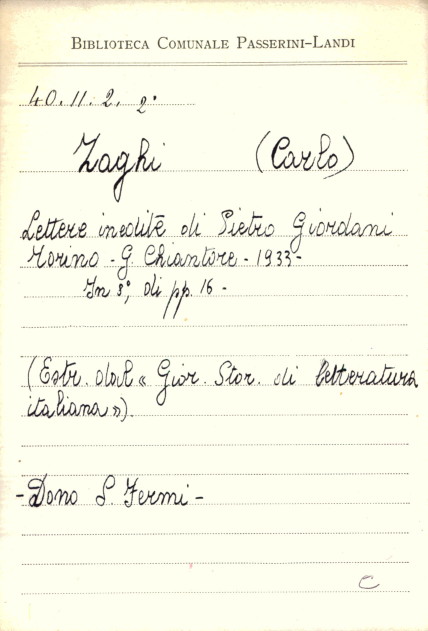 BIBLIOTECA COMUNALE PASSERINI-LANDI
40.11.2. 2°
Zaghi (Carlo)
Lettere inedite di Pietro Giordani
Torino - G. Chiantore - 1933 -
In 8°, di pp. 16 -
(Estr. dal « Gior. Stor. di letteratura
italiana »).
- Dono S. Fermi -
C